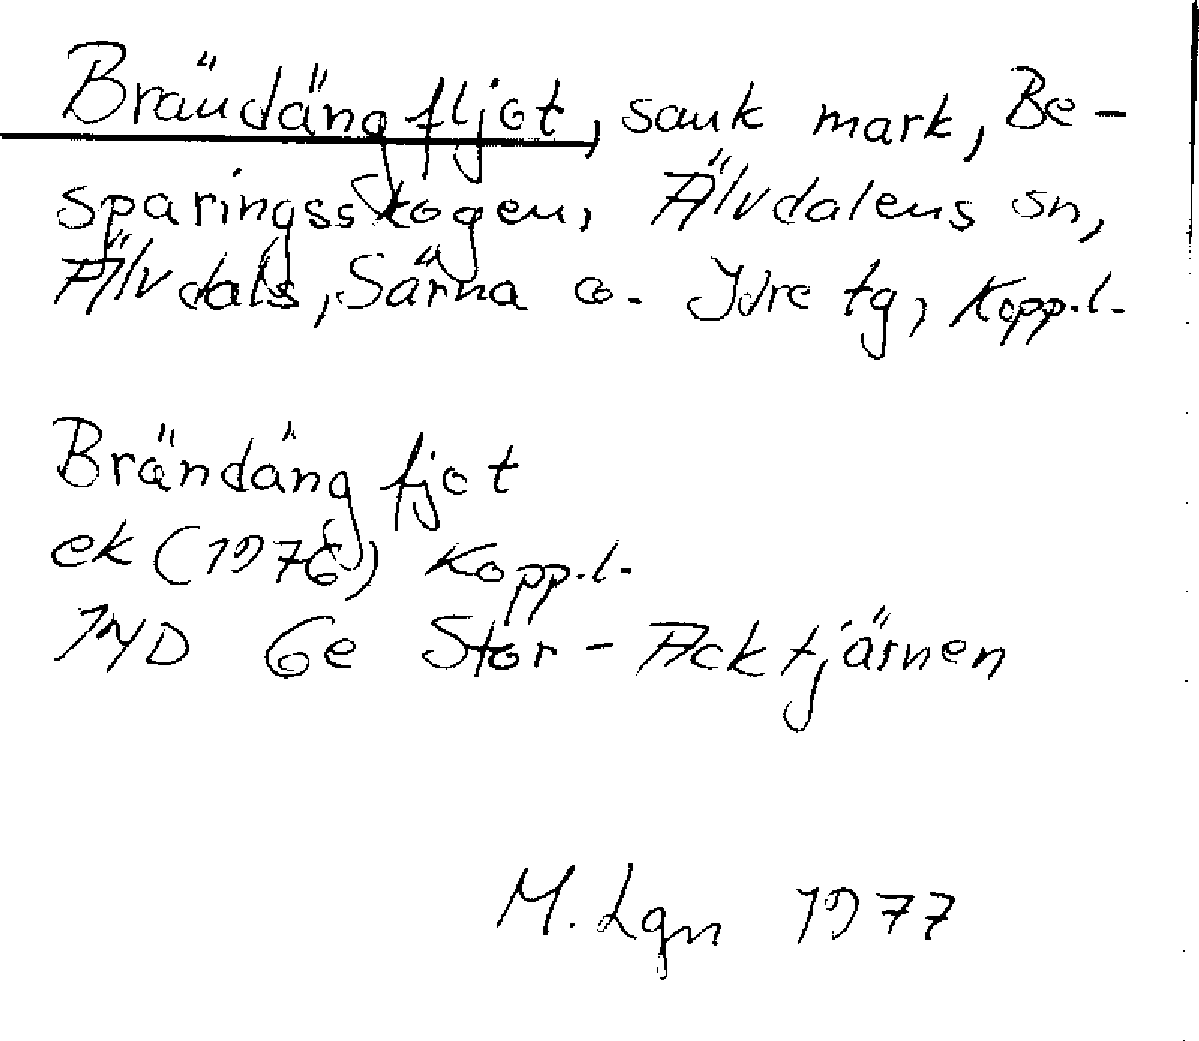 Brändängfljot, sank mark, Be-
sparingsskogen, Älvdalens sn,
Älvdals, Särna o. Idre tg, Kopp.l.
Brändäng fjot
ek (1976) Kopp.l.
14D 6e Stor-Acktjärnen
M. Lgn 1977